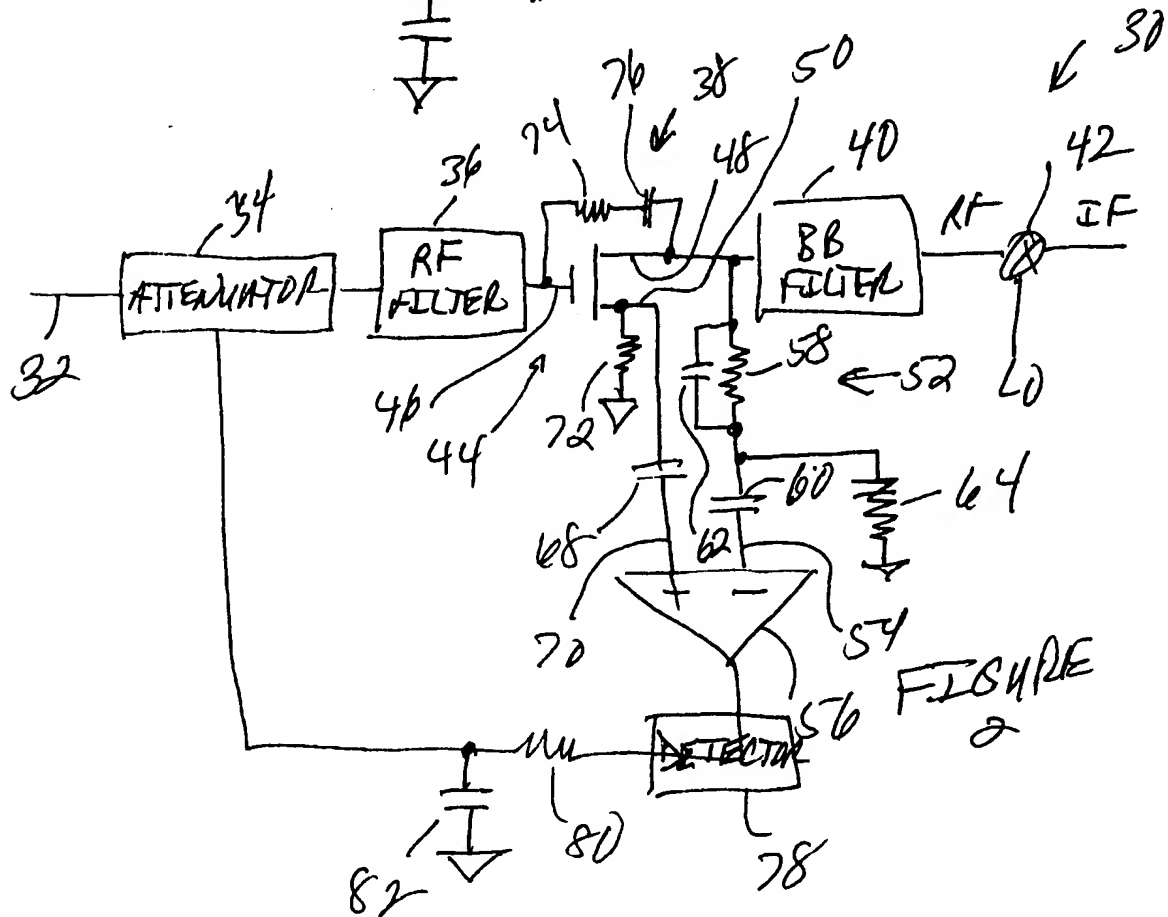 30
76
38
50
74
48
40
42
34
36
RF
IF
ATTENUATOR
RF
FILTER
BB
FILTER
32
46
44
72
58
52
LO
68
62
60
64
+
-
70
54
56
FIGURE
2
DETECTOR
82
80
78